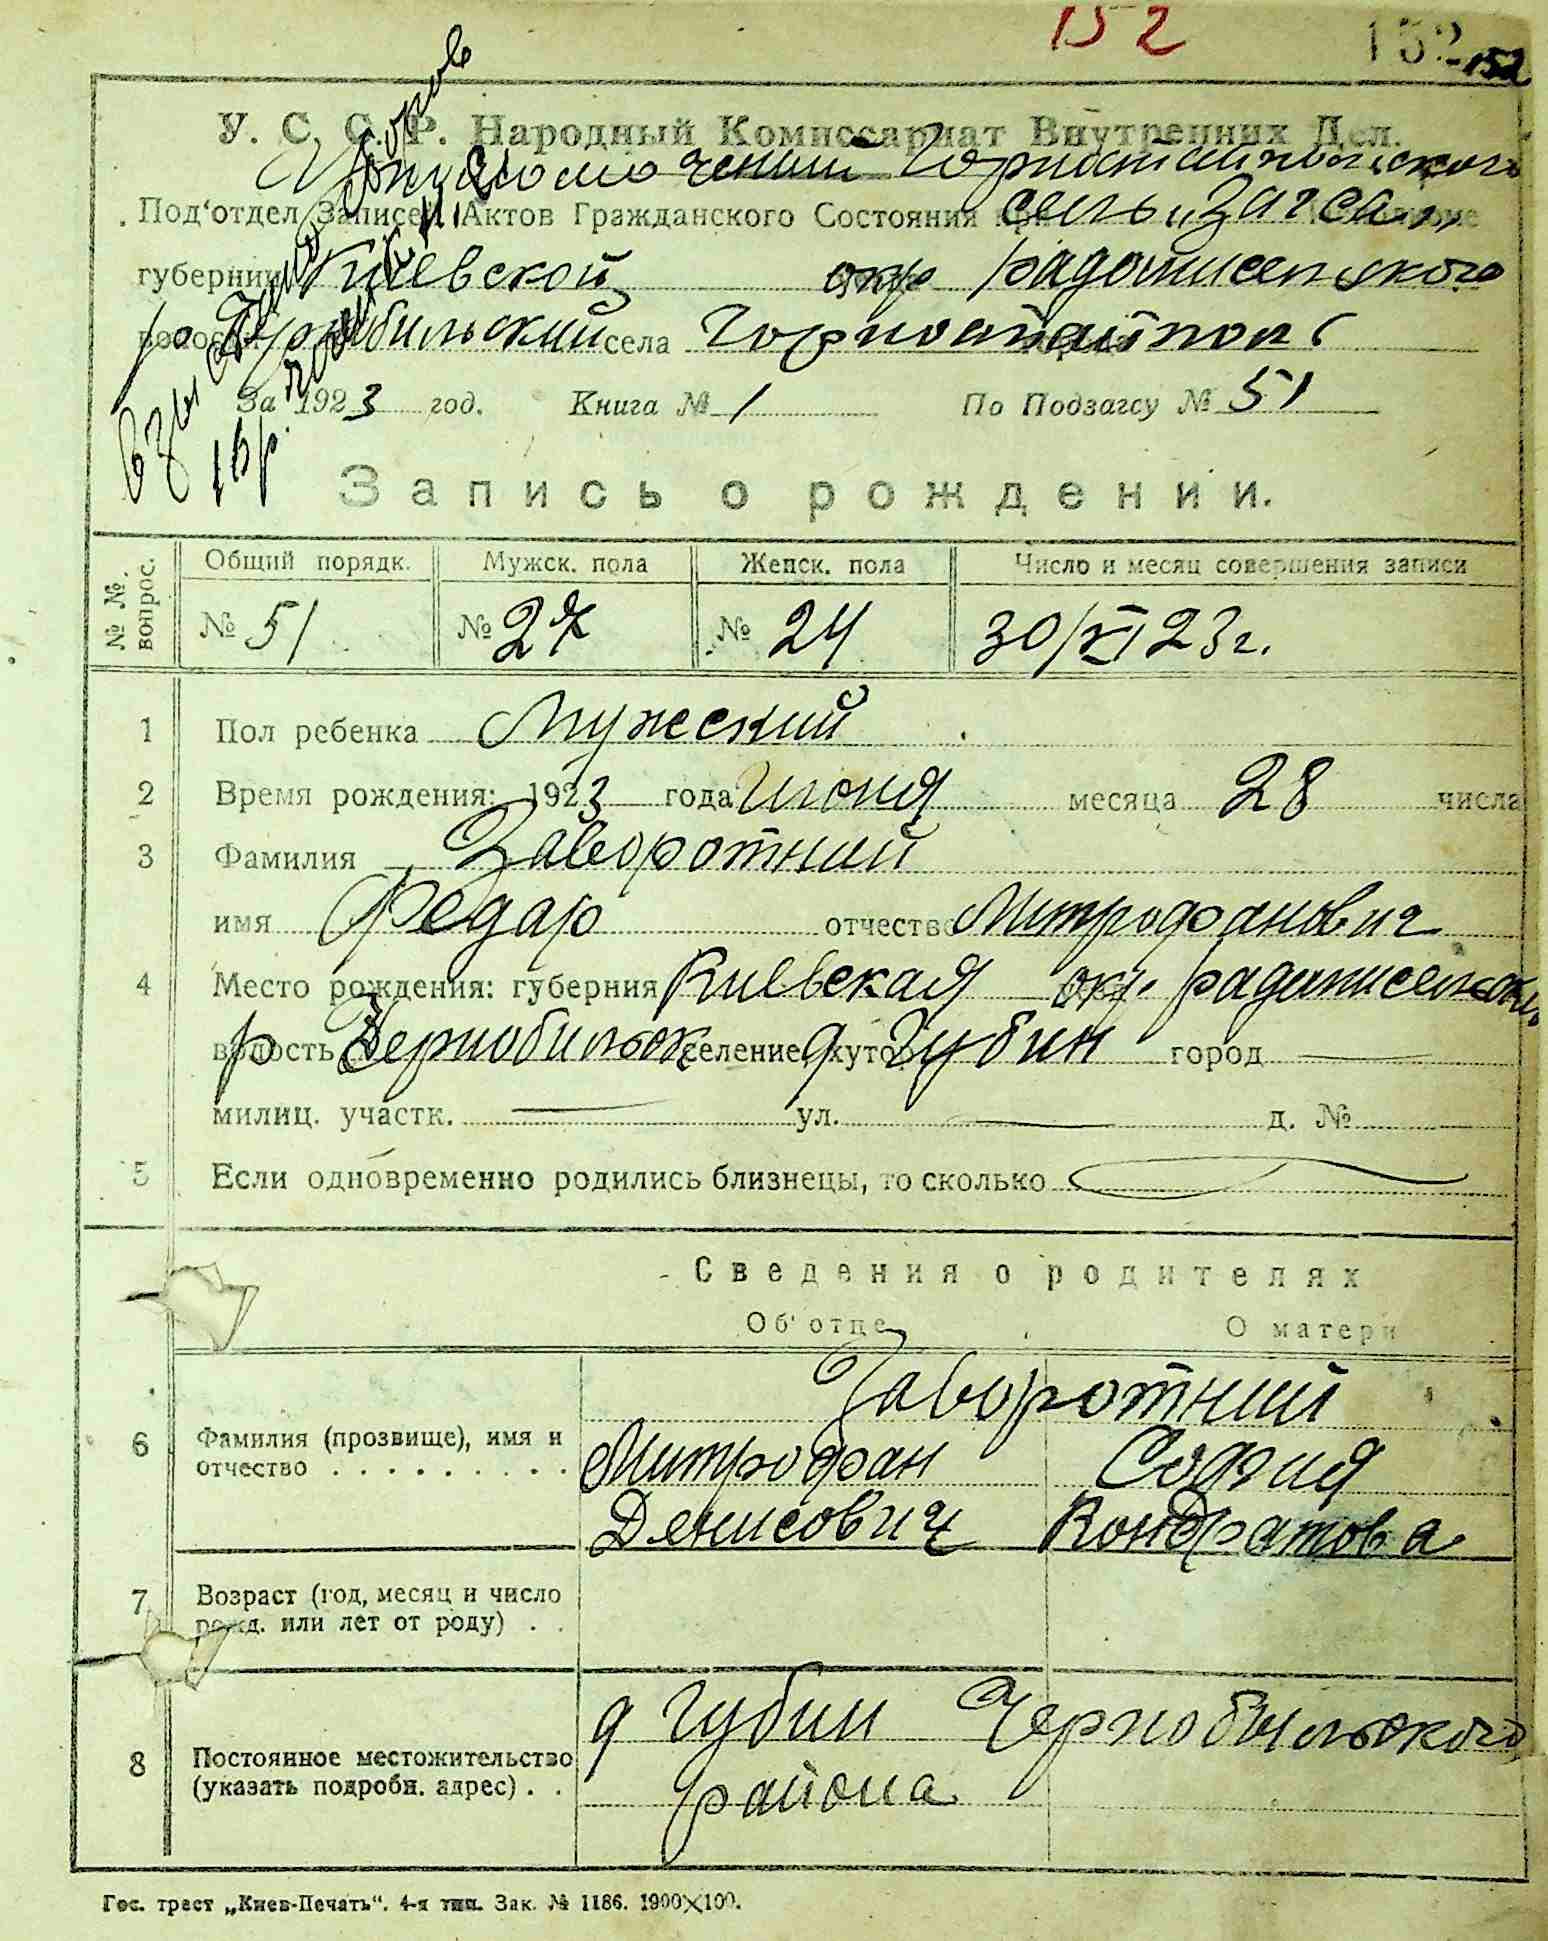 152
152 152
У. С. С. Р. Народный Комиссариат Внутренних Дел.
Уполномоченный Горностайпольского
Под'отдел Записей Актов Гражданского Состояния при сель „Загса„
губернии Киевской окр Радомисельского
волость р Чернобильский села Горностайполь
За 1923 год. Книга № 1 По Подзагсу № 51
Запись о рождении.
№ № вопрос. Общий порядк. Мужск. пола Женск. пола Число и месяц совершения записи
№ 51 № 27 № 24 30/VI 23 г.
1 Пол ребенка Мужеский
2 Время рождения: 1923 года Июня месяца 28 числа
3 Фамилия Заворотний
имя Федар отчество Митрофанович
4 Место рождения: губерния Киевская окр. Радомисельский
волость р Чернобильск селение, хутор д Губин город
милиц. участк. ул. д. №
5 Если одновременно родились близнецы, то сколько
Сведения о родителях
Об' отце О матери
Заворотний
6 Фамилия (прозвище), имя и отчество Митрофан София
Денисович Кондратова
7 Возраст (год, месяц и число рожд. или лет от роду)
8 Постоянное местожительство (указать подробн. адрес) д Губин Чернобыльского
района
Гос. трест „Киев-Печать". 4-я тип. Зак. № 1186. 1900×100.